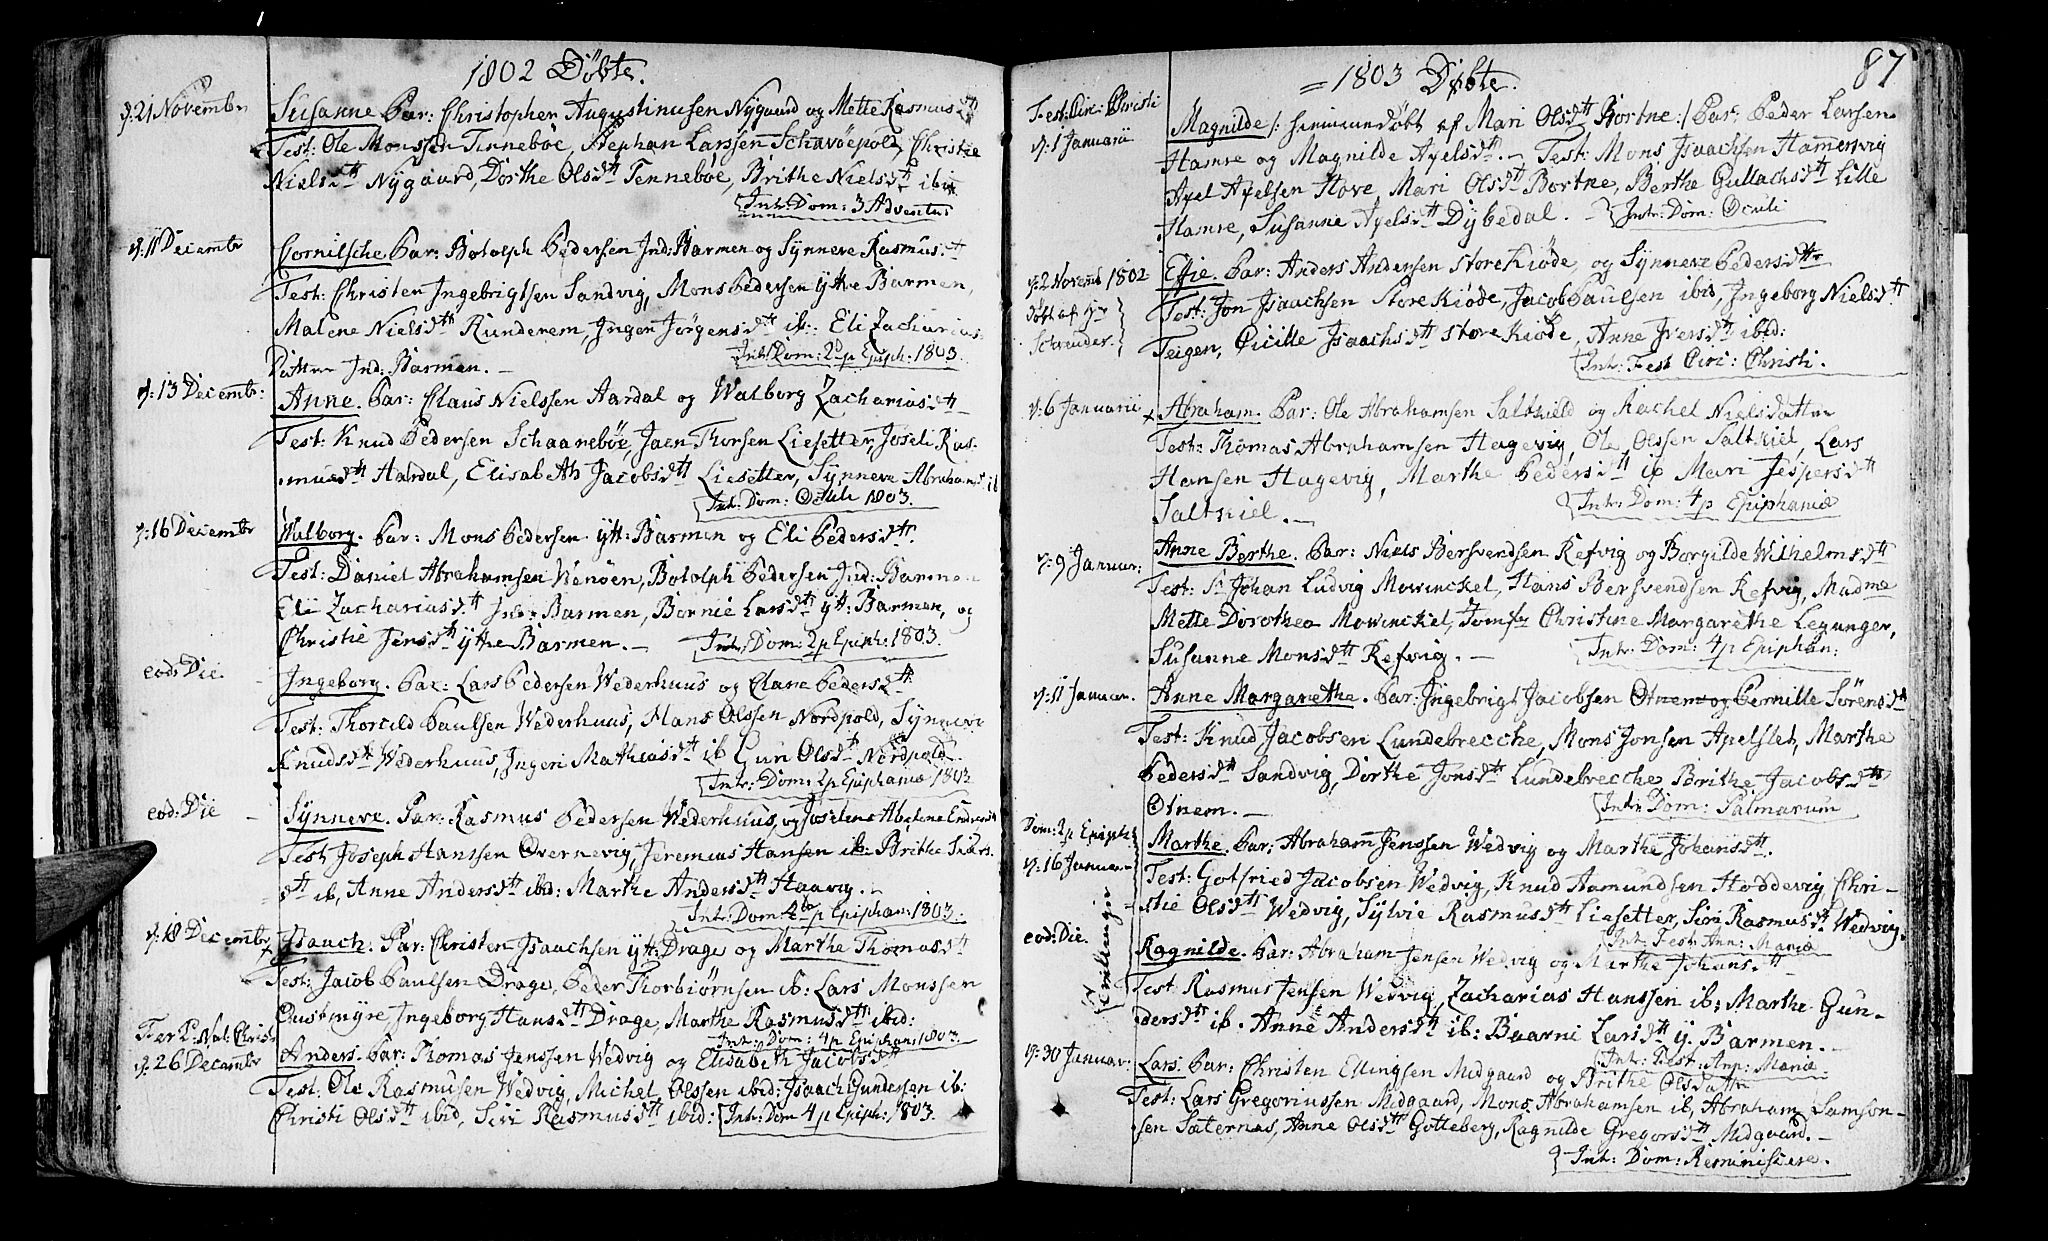 1802 Döbte.
d: 21 Novembr
Susanne Par: Christopher Augustinusen Nygaard og Mette Rasmusdtt
Test: Ole Monssen Tennebøe, Stephan Larssen Schavøepold, Christie
Nielsdtt Nygaard, Dorthe Olsdtt Tennebøe, Brithe Nielsdtt ibid
Intr: Dom: 3 Adventus
d: 11 Decembr
Cornilsche Par: Botolph Pedersen Ind: Barmen og Synneve Rasmusdtt
Test: Christen Ingebrigtsen Sandvig, Mons Pedersen yttre Barmen,
Malene Nielsdtt Runderem, Inger Jörgensdtt ib: Eli Zacharias
Datter Ind: Barmen. –
Intr: Dom: 2 p Epiph: 1803.
d: 13 Decembr:
Anne. Par: Claus Nielssen Aardal og Walborg Zachariasdtt
Test: Knud Pedersen Schaanebøe, Jaen Thorsen Liesetter, Joseli Ras-
musdtt Aardal, Elisabeth Jacobsdtt Liesetter, Synneve Abrahamsd ib
Intr: Dom: Oculi 1803.
d: 16 Decembr
Walborg. Par: Mons Pedersen ytt: Barmen og Eli Pedersdtt.
Test: Daniel Abrahamsen Wenøen, Botolph Pedersen Ind: Barmen
Eli Zachariasdtt Ind: Barmen, Bornie Larsdtt ytt: Barmen, og
Christie Jensdtt yttre Barmen. –
Intr: Dom: 2 p Epiph: 1803.
eod: Die.
Ingeborg. Par: Lars Pedersen Wederhuus og Clare Pedersdtt.
Test: Thorild Paulsen Wederhuus, Hans Olssen Nordpold, Synneve
Knudsdtt Wederhuus, Ingeri Mathiasdtt ib Guri Olsdtt Nordpold.
Intr: Dom: 2 p Epiphaniæ 1803
eod: Die
Synneve. Par: Rasmus Pedersen Wederhuus, og Joseline Abelene
Test Joseph Hanssen Overnevig, Jeremias Hansen ib: Brithe
dtt ib, Anne Andersdtt ibid: Marthe Andersdtt Haavig. –
Intr: Dom 4 p Epiphan: 1803.
d: 18 Decembr
Isaach. Par: Christen Isaachsen ytt: Drage og Marthe Thomasdtt
Test: Jacob Paulsen Drage, Peder Thorbiörnsen ib: Lars Monssen
Custmyre Ingeborg Hansdtt Drage, Marthe Rasmusdtt ibid:
Intr: Dom: 4 p Epiphan: 1803.
Fer 2: Nat: Christi
d: 26 Decembr
Anders. Par: Thomas Jenssen Wedvig og Elisabeth Jacobsdtt
Test: Ole Rasmusen Wedvig, Michel Olssen ibid: Isaach Gundersen ib:
Christi Olsdtt ibid, Siri Rasmusdtt ibid:
Intr: Dom 4 p Epiph: 1803.
87
1803 Döbte.
Fest: Circ: Christi
d: 1 Januarii
Magnilde /: hiemmedöbt af Mari Olsdtt Bortne :/ Par: Peder Larsen
Hamre og Magnilde Axelsdtt. – Test: Mons Isaachsen Hamersvig
Axel Axelsen Hove, Mari Olsdtt Bortne, Berthe Gullachsdtt Lille
Hamre, Susanne Axelsdtt Dybedal. –
Intr: Dom: Oculi
d: 2 Novemb 1802
döbt af Hr
Schreuder.
Effie. Par: Anders Andersen Store Kiöde, og Synneve Pedersdtter
Test: Jon Isaachsen Store Kiöde, Jacob Paulsen ibid, Ingeborg Nielsdtt
Teigen, Cicille Isaachsdtt Store Kiöde, Anne Iversdtt ibid:
Intr: Fest Circ: Christi.
d: 6 Januarii
Abraham. Par: Ole Abrahamsen Saltkield og Rachel Nielsdatter
Test: Thomas Abrahamsen Hagevig, Ole Olssen Saltkiel, Lars
Hansen Hagevig, Marthe Pedersdtt ib Mari Jespersdtt
Saltkiel. –
Intr: Dom: 4 p Epiphaniæ
d: 9 Januar:
Anne Berthe. Par: Niels Bersvendsen Refvig og Borgilde Wilhelmsdtt
Test: Sr Johan Ludvig Mowinckel, Hans Bersvendsen Refvig, Madme
Mette Dorothea Mowinckel, Jomfr Christine Margarethe Legunger,
Susanne Monsdtt Refvig. –
Intr: Dom: 4 p Epiphan:
d: 11 Januar.
Anne Margarethe. Par: Ingebrigt Jacobsen Otnem og Pernille Sörensdtt
Test: Knud Jacobsen Lundebrecche, Mons Jonsen Apelset, Marthe
Pedersdtt Sandvig, Dorthe Jonsdtt Lundebrecche Brithe Jacobsdtt
Otnem. –
Intr: Dom: Palmarum
Dom: 2 p Epiph:
d: 16 Januar
Tvillinger
Marthe. Par: Abraham Jenssen Wedvig og Marthe Johansdtt.
Test: Gotfried Jacobsen Wedvig, Knud Aamundsen Hoddevig Chri-
stie Olsdtt Wedvig, Sylvie Rasmusdtt Liesetter, Siri Rasmusdtt Wedvig.
Intr Fest: Ann: Mariæ
eod: Die.
Ragnilde. Par: Abraham Jensen Wedvig og Marthe Johansdtt. –
Test Rasmus Jensen Wedvig, Zacharias Hanssen ib: Marthe Gun-
dersdtt ib. Anne Andersdtt ib: Baarni Larsdtt y. Barmen. –
Intr: Fest: Ann: Mariæ.
d: 30 Januar:
Lars. Par: Christen Ellingsen Midgaard og Brithe Olsdatter
Test: Lars Gregoriussen Midgaard, Mons Abrahamsen ib, Abraham Samson-
sen Sæternæs, Anne Olsdtt Gotteberg, Ragnilde Gregorsdtt Midgaard. –
Intr: Dom: Reminiscere.